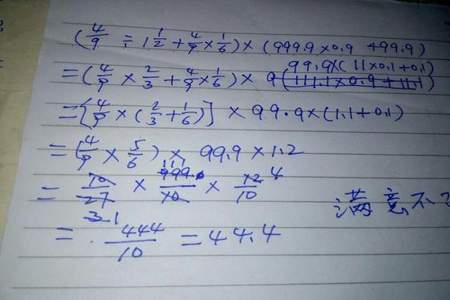 (4/9 ÷ 1 1/2 + 4/9 × 1/6) × (999.9×0.9 +99.9)
99.9×(11×0.1+0.1)
= (4/9 × 2/3 + 4/9 × 1/6) × 9(111.1×0.9+11.1)
= [4/9 × (2/3 + 1/6)] × 99.9×(1.1+0.1)
= (4/9 × 5/6) × 99.9×1.2
= 10/27 × 999/10 × 12/10
= 444/10 = 44.4
满意不